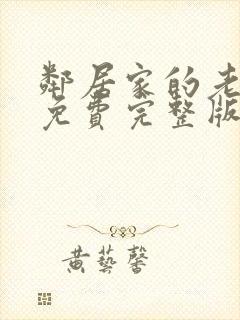 鄰居家的老
免費完整版
黃藝馨